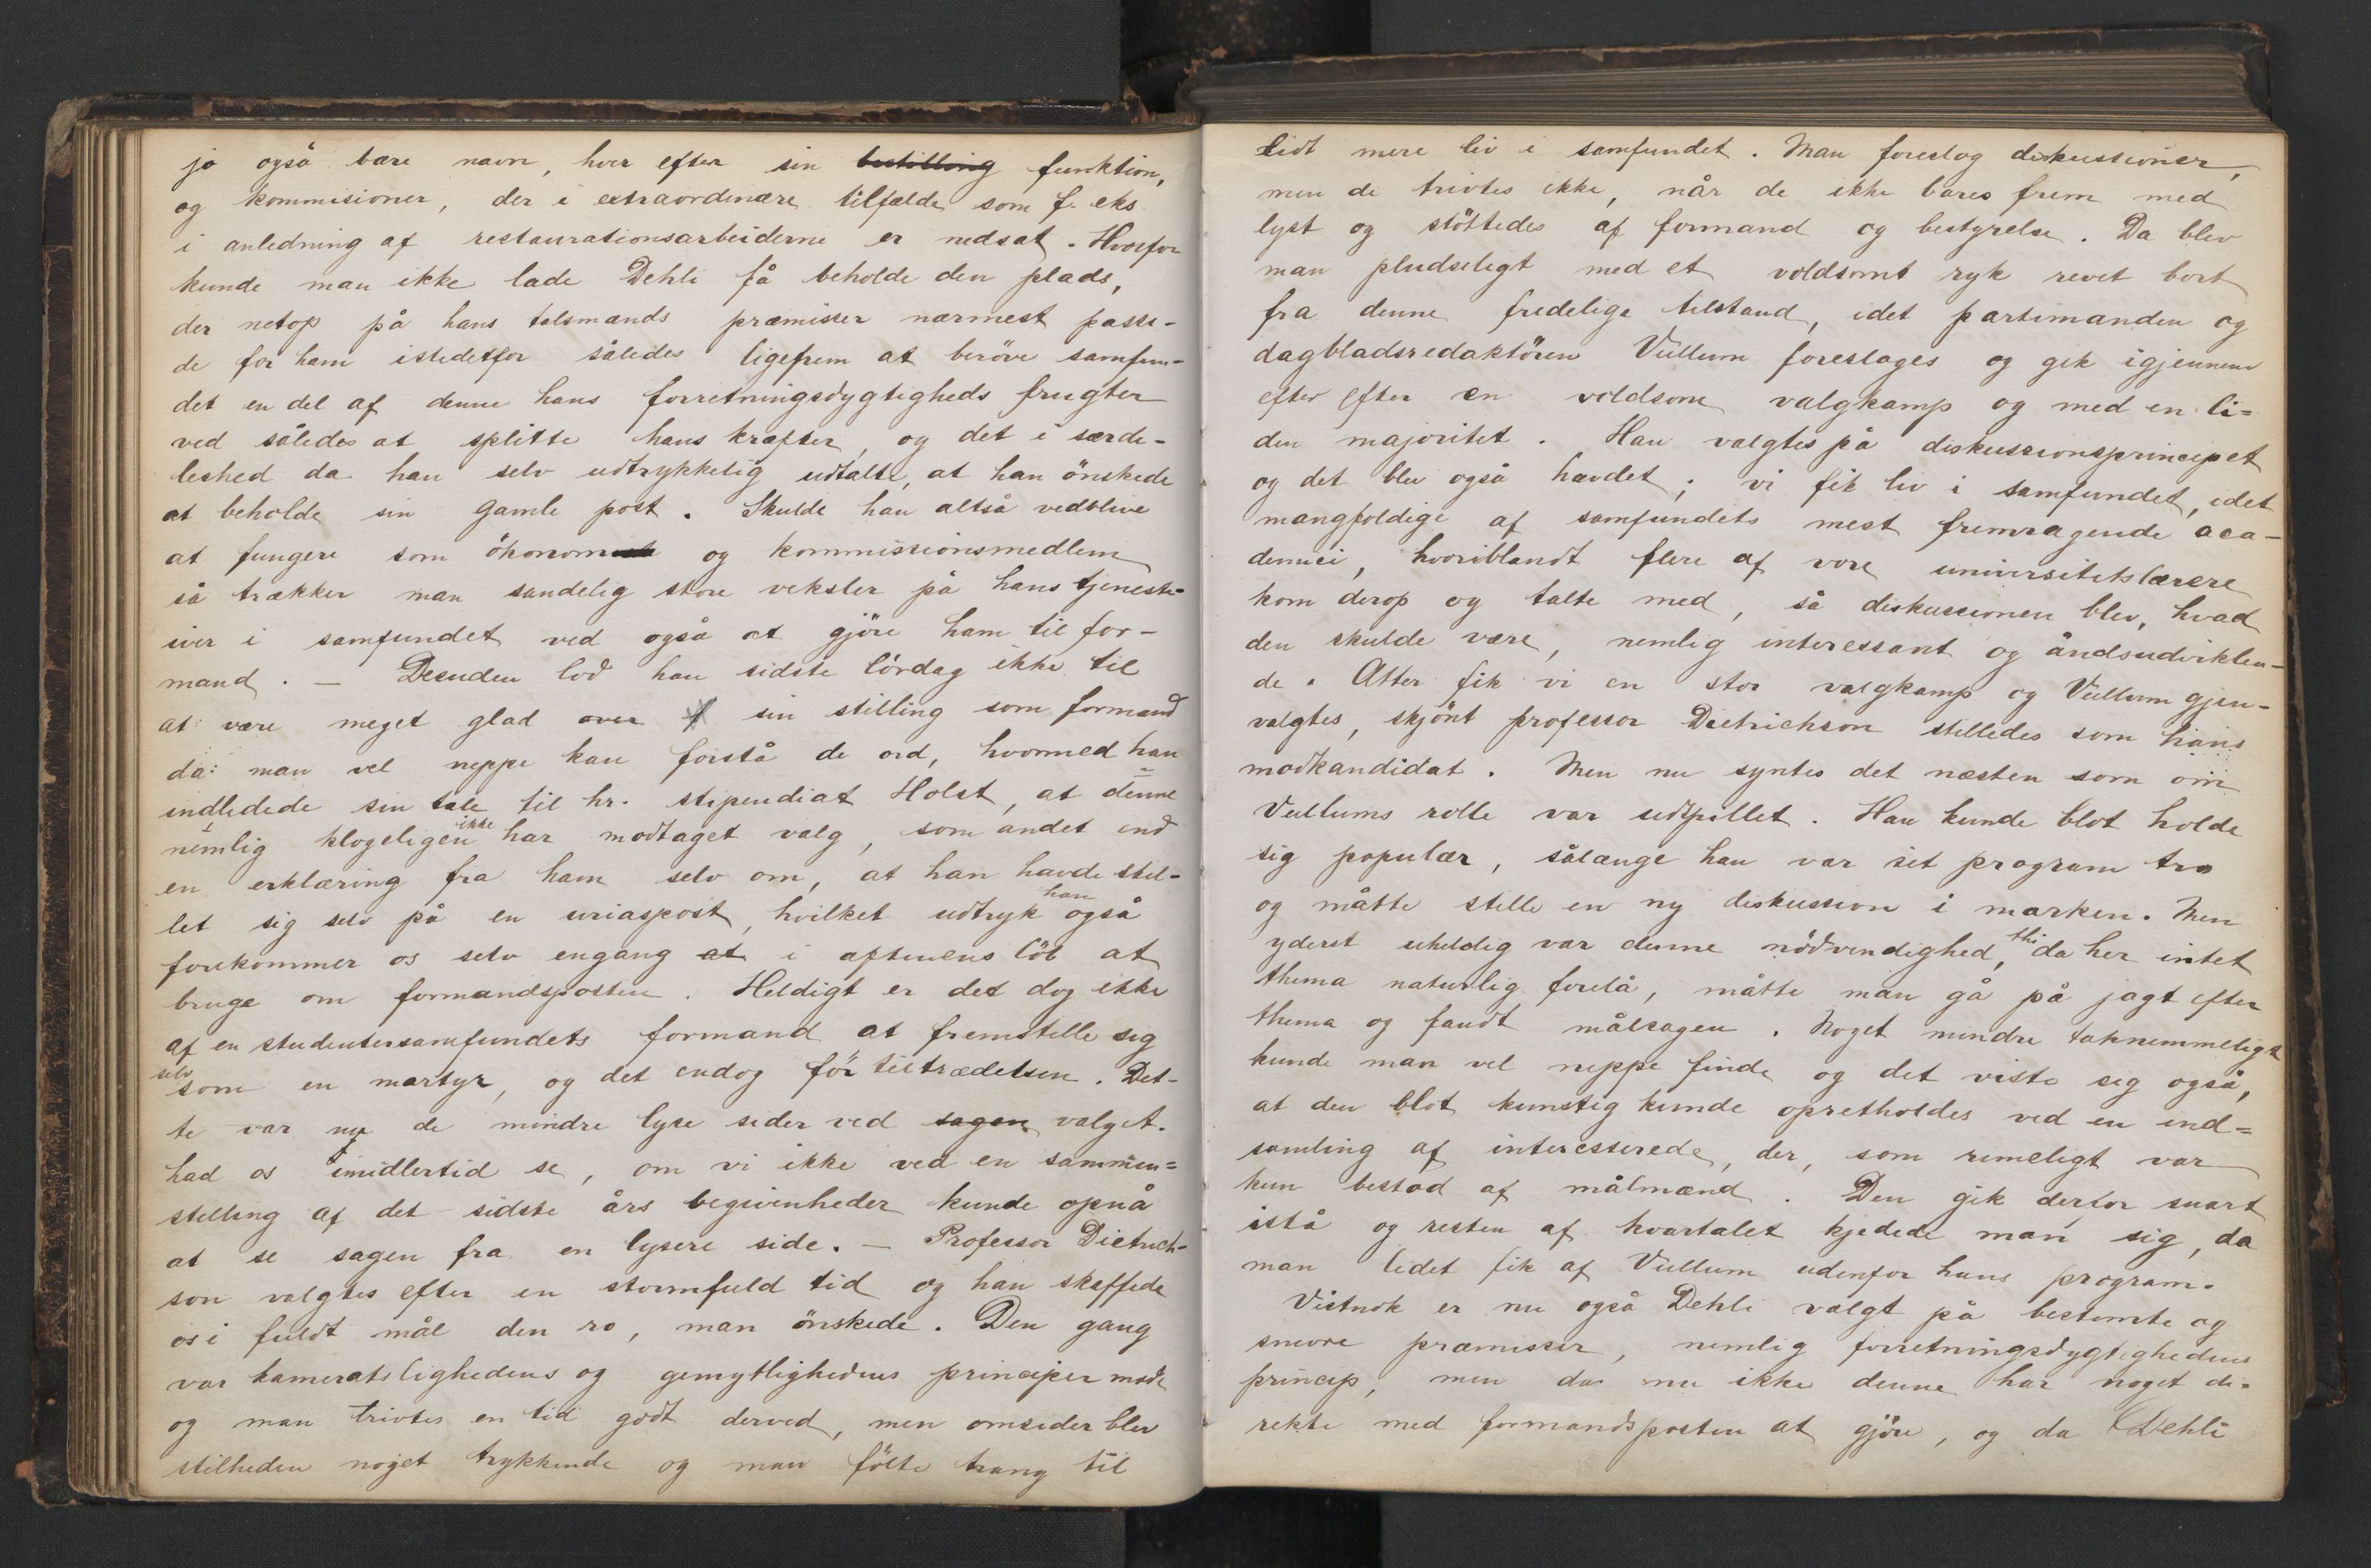 jo også bære navn, hver efter sin bestilling funktion,
og kommisioner, der i extraordinære tilfælde som f. eks
i anledning af restaurationsarbeiderne er nedsat. Hvorfor
kunde man ikke lade Dehli få beholde den plads,
der netop på hans talsmænds præmisser nærmest passe-
de for ham istedetfor således ligefrem at beröve samfun-
det en del af denne hans forretningsdygtigheds frugter
ved således at splitte hans kræfter, og det i særde-
leshed da han selv udtrykkelig udtalte, at han önskede
at beholde sin gamle post. Skulde han altså vedblive
at fungere som ökonom og kommissionsmedlem
så trækker man sandelig store veksler på hans tjeneste-
iver i samfundet ved også at gjöre ham til for-
mand. — Desuden lod han sidste lördag ikke til
at være meget glad over sin stilling som formand
da man vel neppe kan forstå de ord, hvormed han
indledede sin tale til hr. stipendiat Holst, at denne
nemlig klogeligen ikke har modtaget valg, som andet end
en erklæring fra ham selv om, at han havde stil-
let sig selv på en uriaspost, hvilket udtryk han også
forekommer os selv engang at i aftenens löb at
bruge om formandsposten. Heldigt er det dog ikke
af en studentersamfundets formand at fremstille sig
selv som en martyr, og det endog för tiltrædelsen. Det-
te var nu de mindre lyse sider ved sagen valget.
Lad os imidlertid se, om vi ikke ved en sammen=
stilling af det sidste års begivenheder kunde opnå
at se sagen fra en lysere side. — Professor Dietrich-
son valgtes efter en stormfuld tid og han skaffede
os i fuldt mål den ro, man önskede. Den gang
var kameratslighedens og gemytlighedens principer mode
og man trivtes en tid godt derved, men omsider blev
stilheden noget trykkende og man fölte trang til
lidt mere liv i samfundet. Man foreslog diskussioner,
men de trivtes ikke, når de ikke bares frem med
lyst og stöttedes af formand og bestyrelse. Da blev
man pludseligt med et voldsomt ryk revet bort
fra denne fredelige tilstand, idet partimanden og
dagbladsredaktören Vullum foresloges og gik igjennem
efter efter en voldsom valgkamp og med en li=
den majoritet. Han valgtes på diskussionsprincipet
og det blev også hævdet; vi fik liv i samfundet, idet
mangfoldige af samfundets mest fremragende aca-
demici, hvoriblandt flere af vore universitetslærere
kom derop og talte med, så diskussionen blev, hvad
den skulde være, nemlig interessant og åndsudviklen-
de. Atter fik vi en stor valgkamp og Vullum gjen-
valgtes, skjönt professor Dietrichson stilledes som hans
modkandidat. Men nu syntes det næsten som om
Vullums rolle var udspillet. Han kunde blot holde
sig populær, sålænge han var sit program tro
og måtte stille en ny diskussion i marken. Men
yderst uheldig var denne nödvendighed, thi da her intet
thema naturlig forelå, måtte man gå på jagt efter
thema og fandt målsagen. Noget mindre taknemmeligt
kunde man vel neppe finde og det viste sig også,
at den blot kunstig kunde opretholdes ved en ind=
samling af interesserede, der, som rimeligt var
kun bestod af målmænd. Den gik derfor snart
istå og resten af kvartalet kjedede man sig, da
man lidet fik af Vullum udenfor hans program.
Vistnok er nu også Dehli valgt på bestemte og
snevre præmisser, nemlig forretningsdygtighedens
princip, men da nu ikke denne har noget di-
rekte med formandsposten at gjöre, og da Dehli